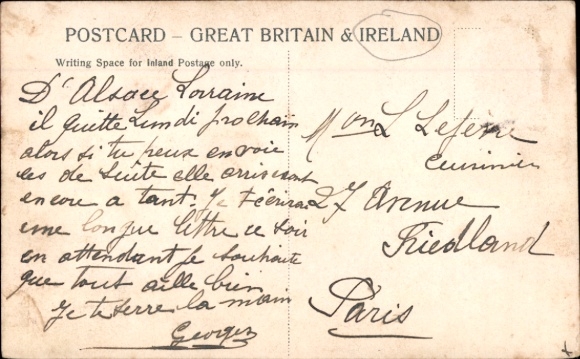 POSTCARD – GREAT BRITAIN & IRELAND
Writing Space for Inland Postage only.
D'Alsace Lorraine
il quitte Lundi prochain
alors si tu peux envoie
les de suite elle
encore a tant. Je t'écrirai
une longue lettre ce soir
en attendant je souhaite
que tout aille bien
Je te serre la main
Georges
Mon L Lefevre
Cuisinier
27 Avenue
Friedland
Paris